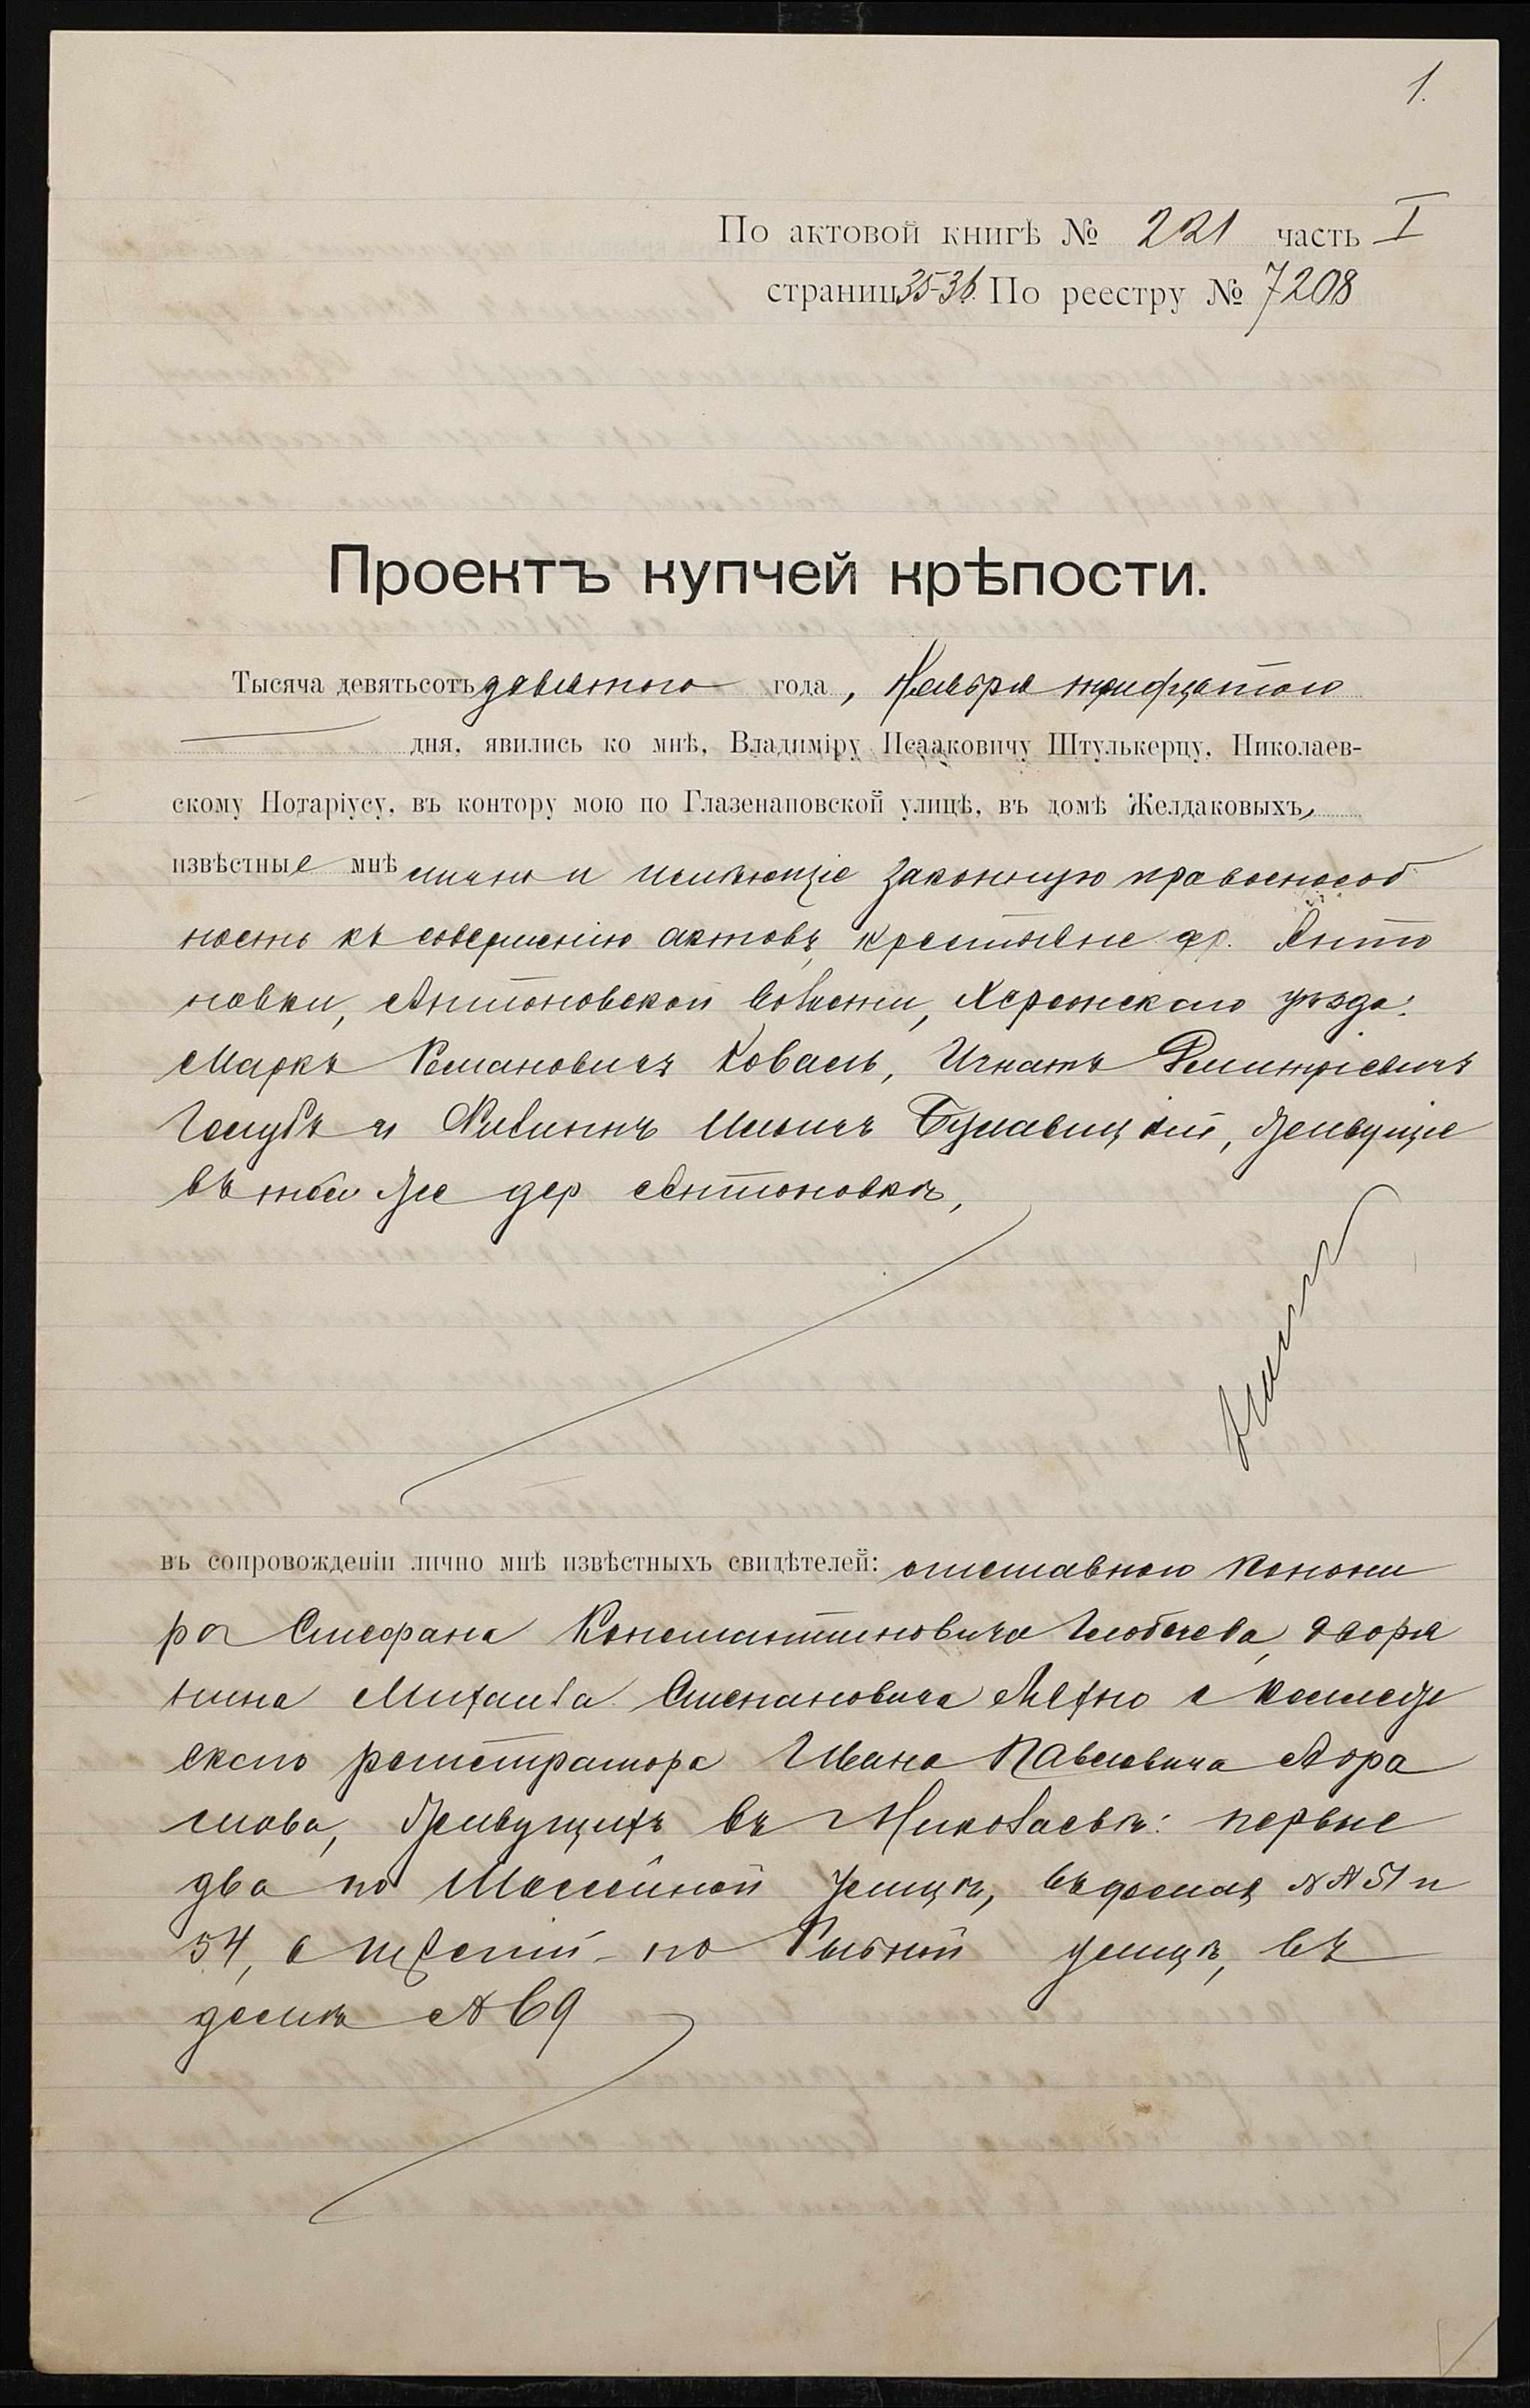 1.
По актовой книгѣ № 221 часть I
страниц 35-36. По реестру № 7208
Проектъ купчей крѣпости.
Тысяча девятьсотъ девятаго года, Ноября тридцатаго
дня, явились ко мнѣ, Владиміру Исааковичу Штулькерцу, Николаев-
скому Нотаріусу, въ контору мою по Глазенаповской улицѣ, въ домѣ Желдаковыхъ,
извѣстные мнѣ лично и имѣющіе законную правоспособ
ность къ совершенію актовъ, крестьяне др. Анто
новки, Антоновской волости, Херсонскаго уѣзда:
Маркъ Романовичъ Коваль, Игнатъ Дмитріевичъ
Голубъ и Филиппъ Ильичъ Булавицкій, живущіе
въ той же дер Антоновкѣ,
въ сопровожденіи лично мнѣ извѣстныхъ свидѣтелей: отставного канони
ра Стефана Константиновича Глобачева, дворя
нина Михаила Степановича и коллеж
скаго регистратора Ивана Павловича Абра
мова, живущихъ въ Николаевѣ: первые
два по улицѣ, въ домахъ №№ 51 и
54, а третій - по Рыбной улицѣ, въ
домѣ № 69